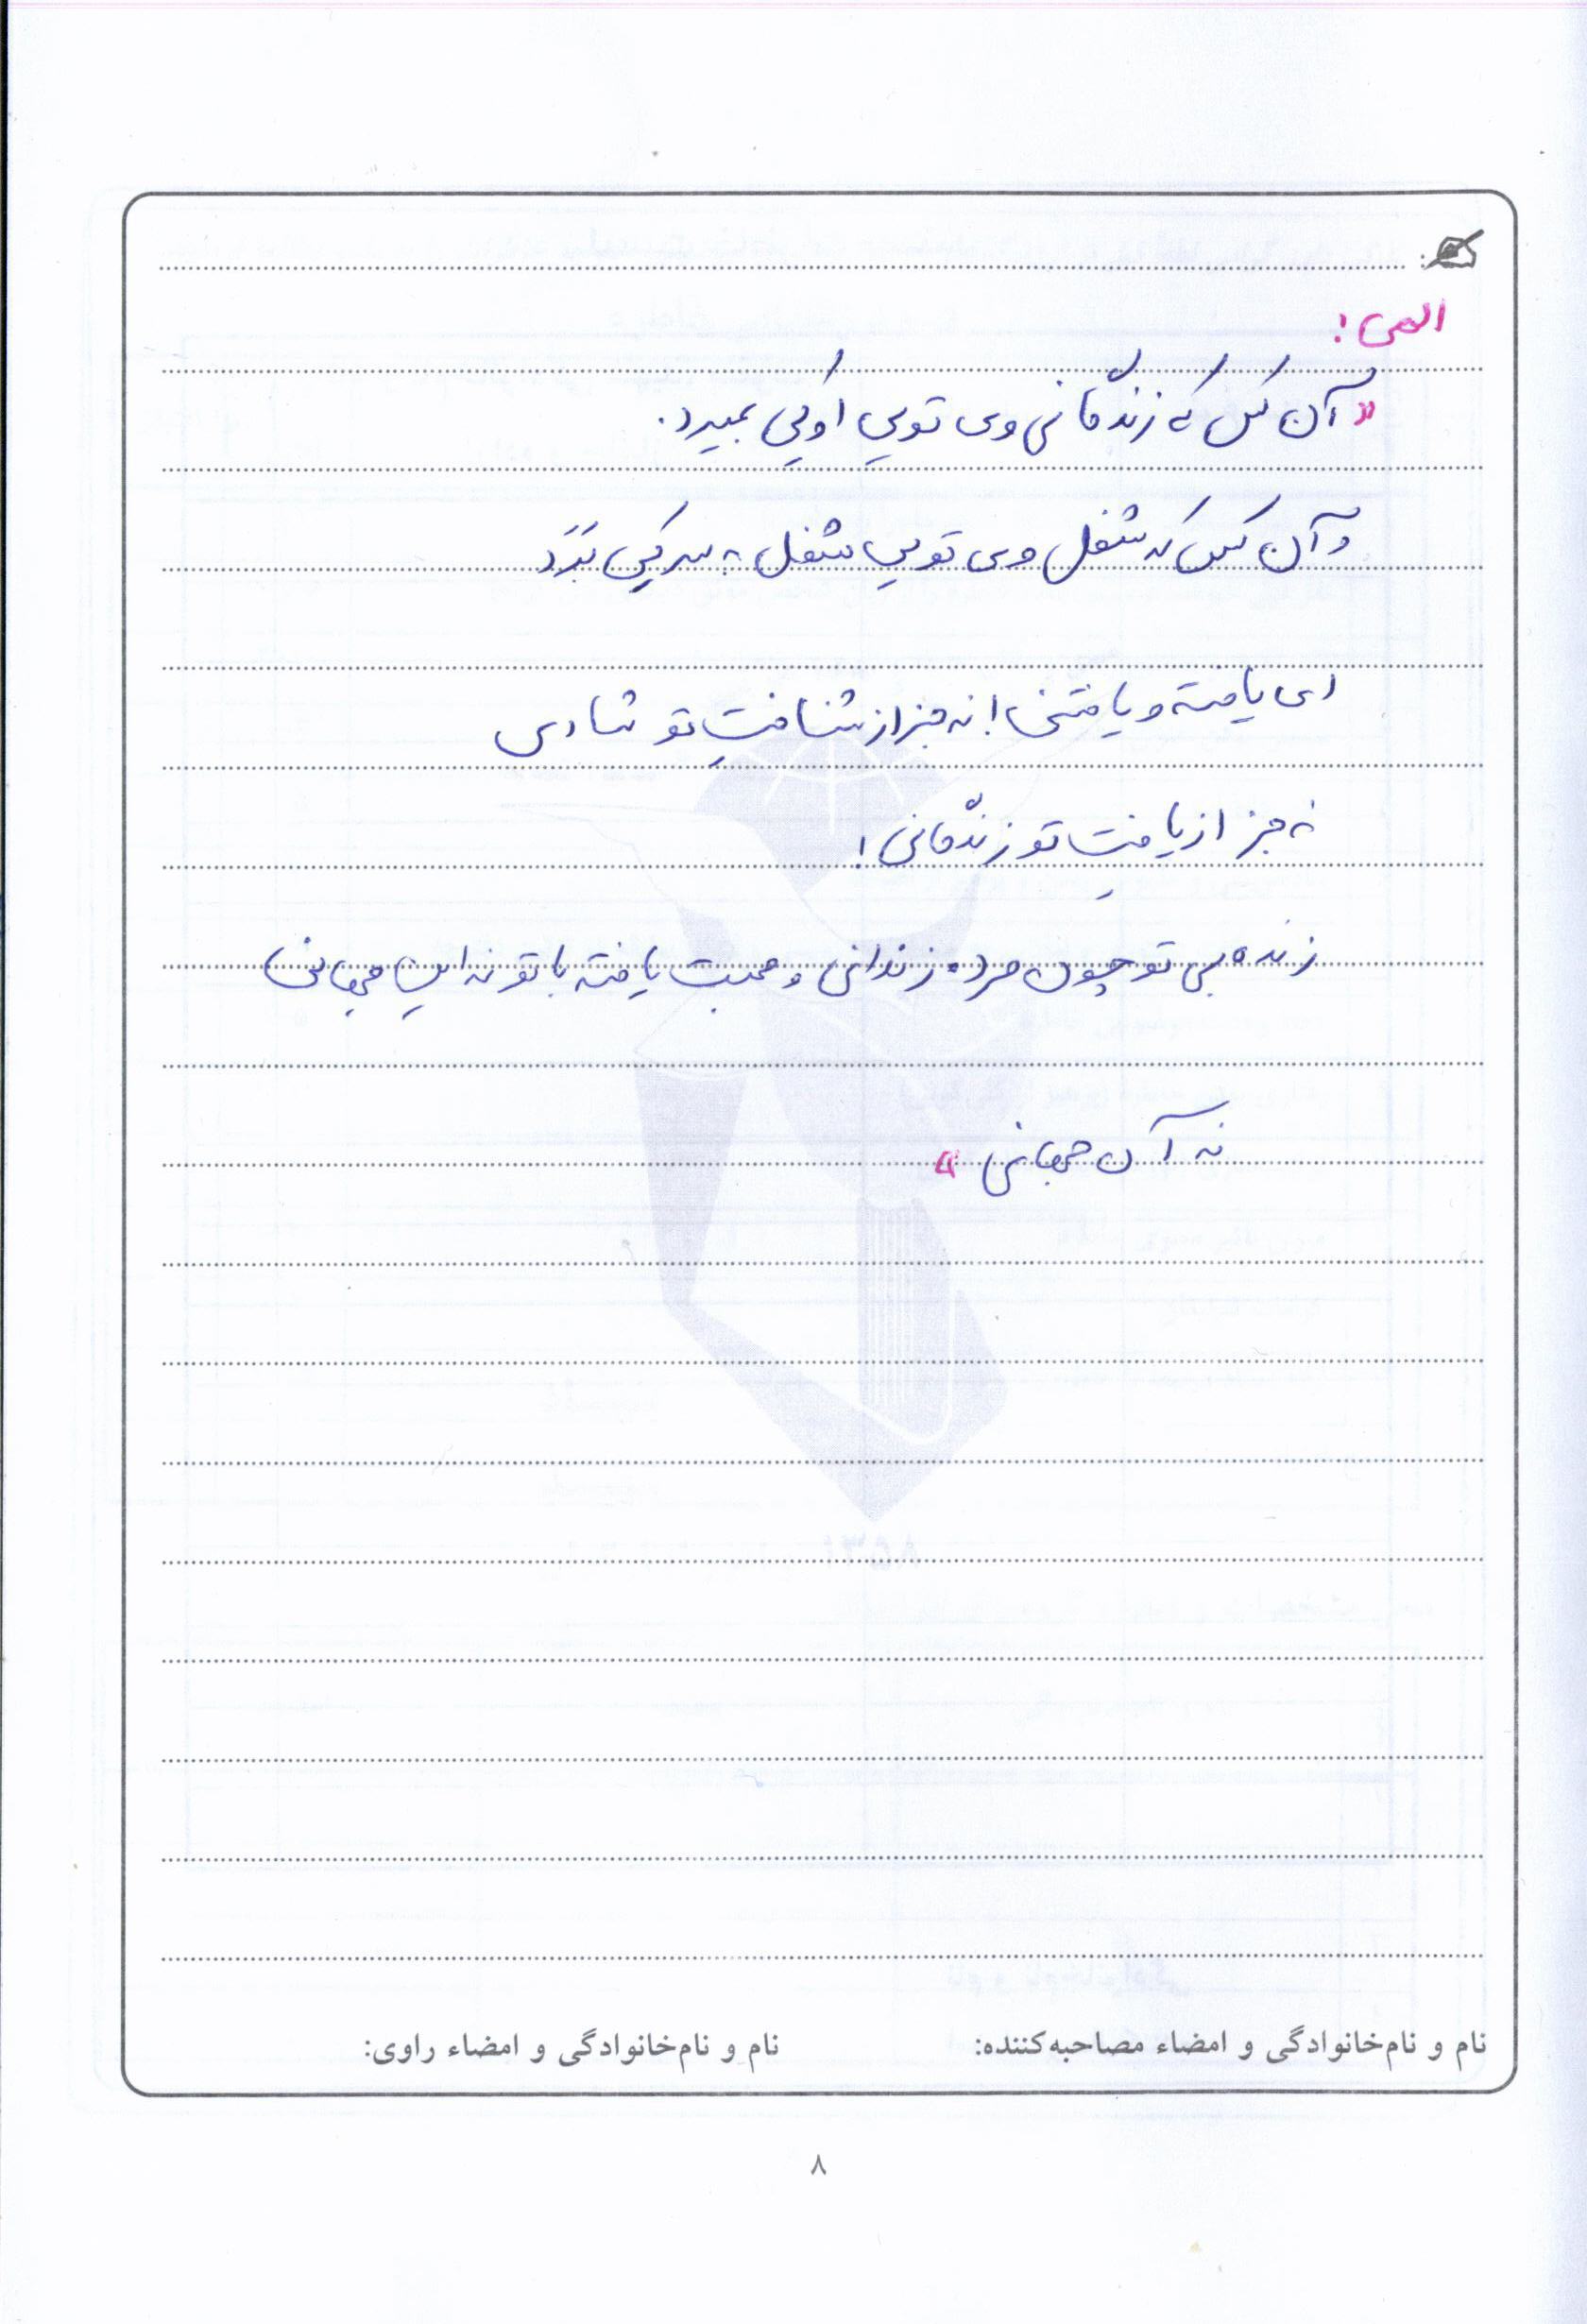 الهی!
«آن کس که زندگانی وی تویی او کی بمیرد.
و آن کس که شغل وی تویی شغل به سر کی بَرَد
ای یافته و یافتنی! نه جز از شناختِ تو شادی
نه جز از یافتِ تو زندگانی!
زنده بی تو چون مرده زندانی و صحبت یافته با تو نه این جهانی
نه آن جهانی»
نام و نام‌خانوادگی و امضاء مصاحبه‌کننده:
نام و نام‌خانوادگی و امضاء راوی:
۸